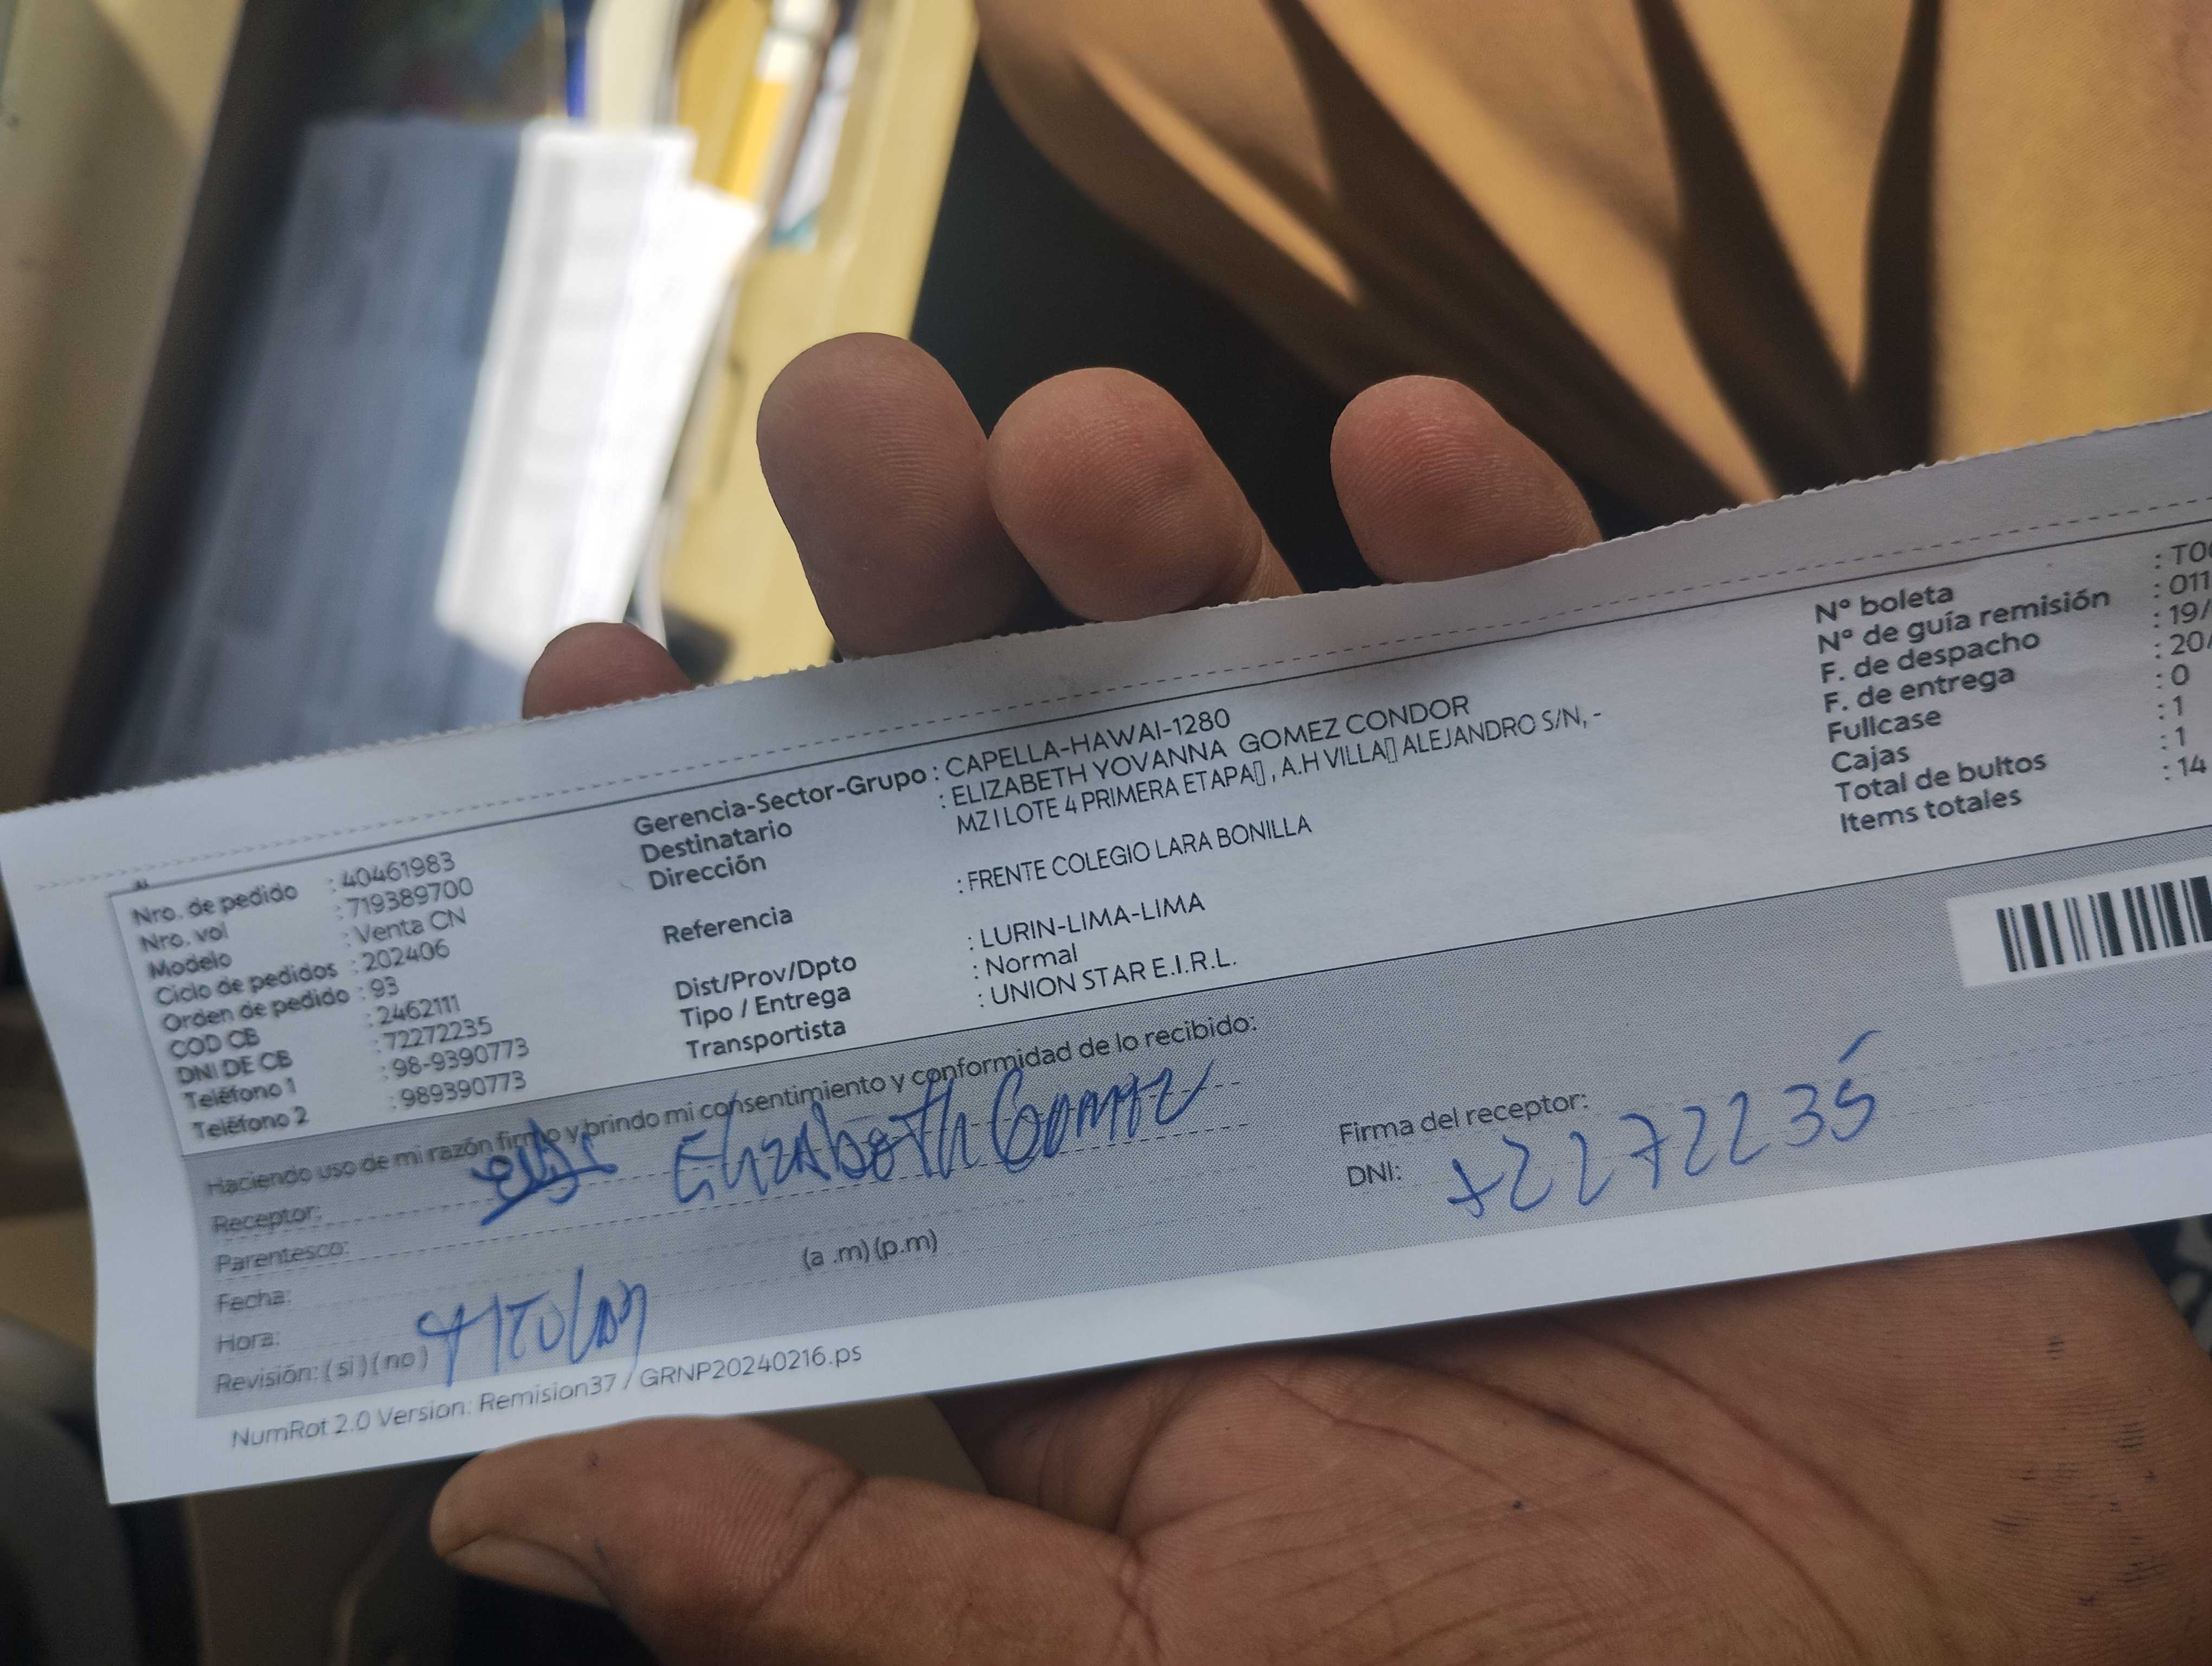 Nro. de pedido : 40461983
Nro. vol : 719389700
Modelo : Venta CN
Ciclo de pedidos : 202406
Orden de pedido : 93
COD CB : 2462111
DNI DE CB : 72272235
Teléfono 1 : 98-9390773
Teléfono 2 : 989390773
Gerencia-Sector-Grupo : CAPELLA-HAWAI-1280
Destinatario : ELIZABETH YOVANNA GOMEZ CONDOR
Dirección MZ I LOTE 4 PRIMERA ETAPA▯, A.H VILLA▯ ALEJANDRO S/N, -
Referencia : FRENTE COLEGIO LARA BONILLA
Dist/Prov/Dpto : LURIN-LIMA-LIMA
Tipo / Entrega : Normal
Transportista : UNION STAR E.I.R.L.
Nº boleta : T00
Nº de guía remisión : 011
F. de despacho : 19/
F. de entrega : 20/
Fullcase : 0
Cajas : 1
Total de bultos : 1
Items totales : 14
Haciendo uso de mi razón firmo y brindo mi consentimiento y conformidad de lo recibido:
Receptor: Elizabeth Gomez
Parentesco:
Fecha:
Hora: (a .m) (p.m)
Revisión: (si) (no) Titular
Firma del receptor:
DNI: 72272235
NumRot 2.0 Version: Remision37 / GRNP20240216.ps